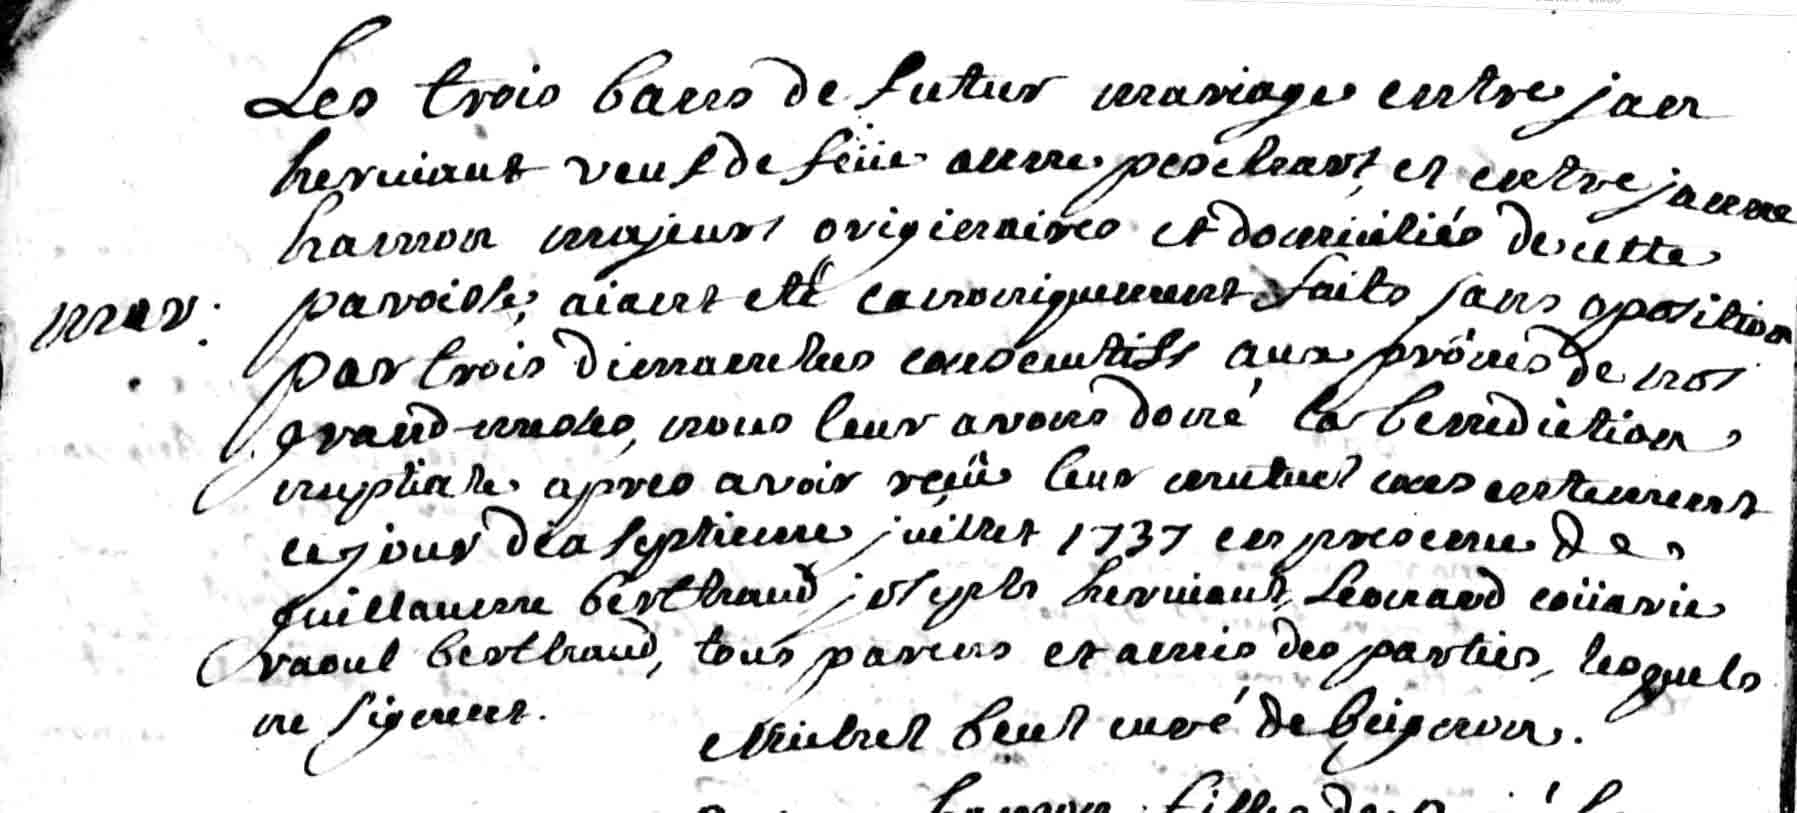 Les trois bans de futur mariage entre jan
herviant veuf de feüe anne peschart, et entre janne
hamon majeurs originaires et domiciliés de cette
mar. paroisse, aiant eté canoniquement faits sans oposition
par trois dimanches consecutifs aux prônes de nos
grand-messes, nous leur avons doné la benediction
nuptiale apres avoir reçüe leur mutuel consentement
ce jour dix septieme juillet 1737 en presence de
guillaume berthaud, joseph herviant, Leonard
raoul berthaud, tous parens et amis des parties, lesquels
ne signent.
Michel curé de beignon.
hamon fille de